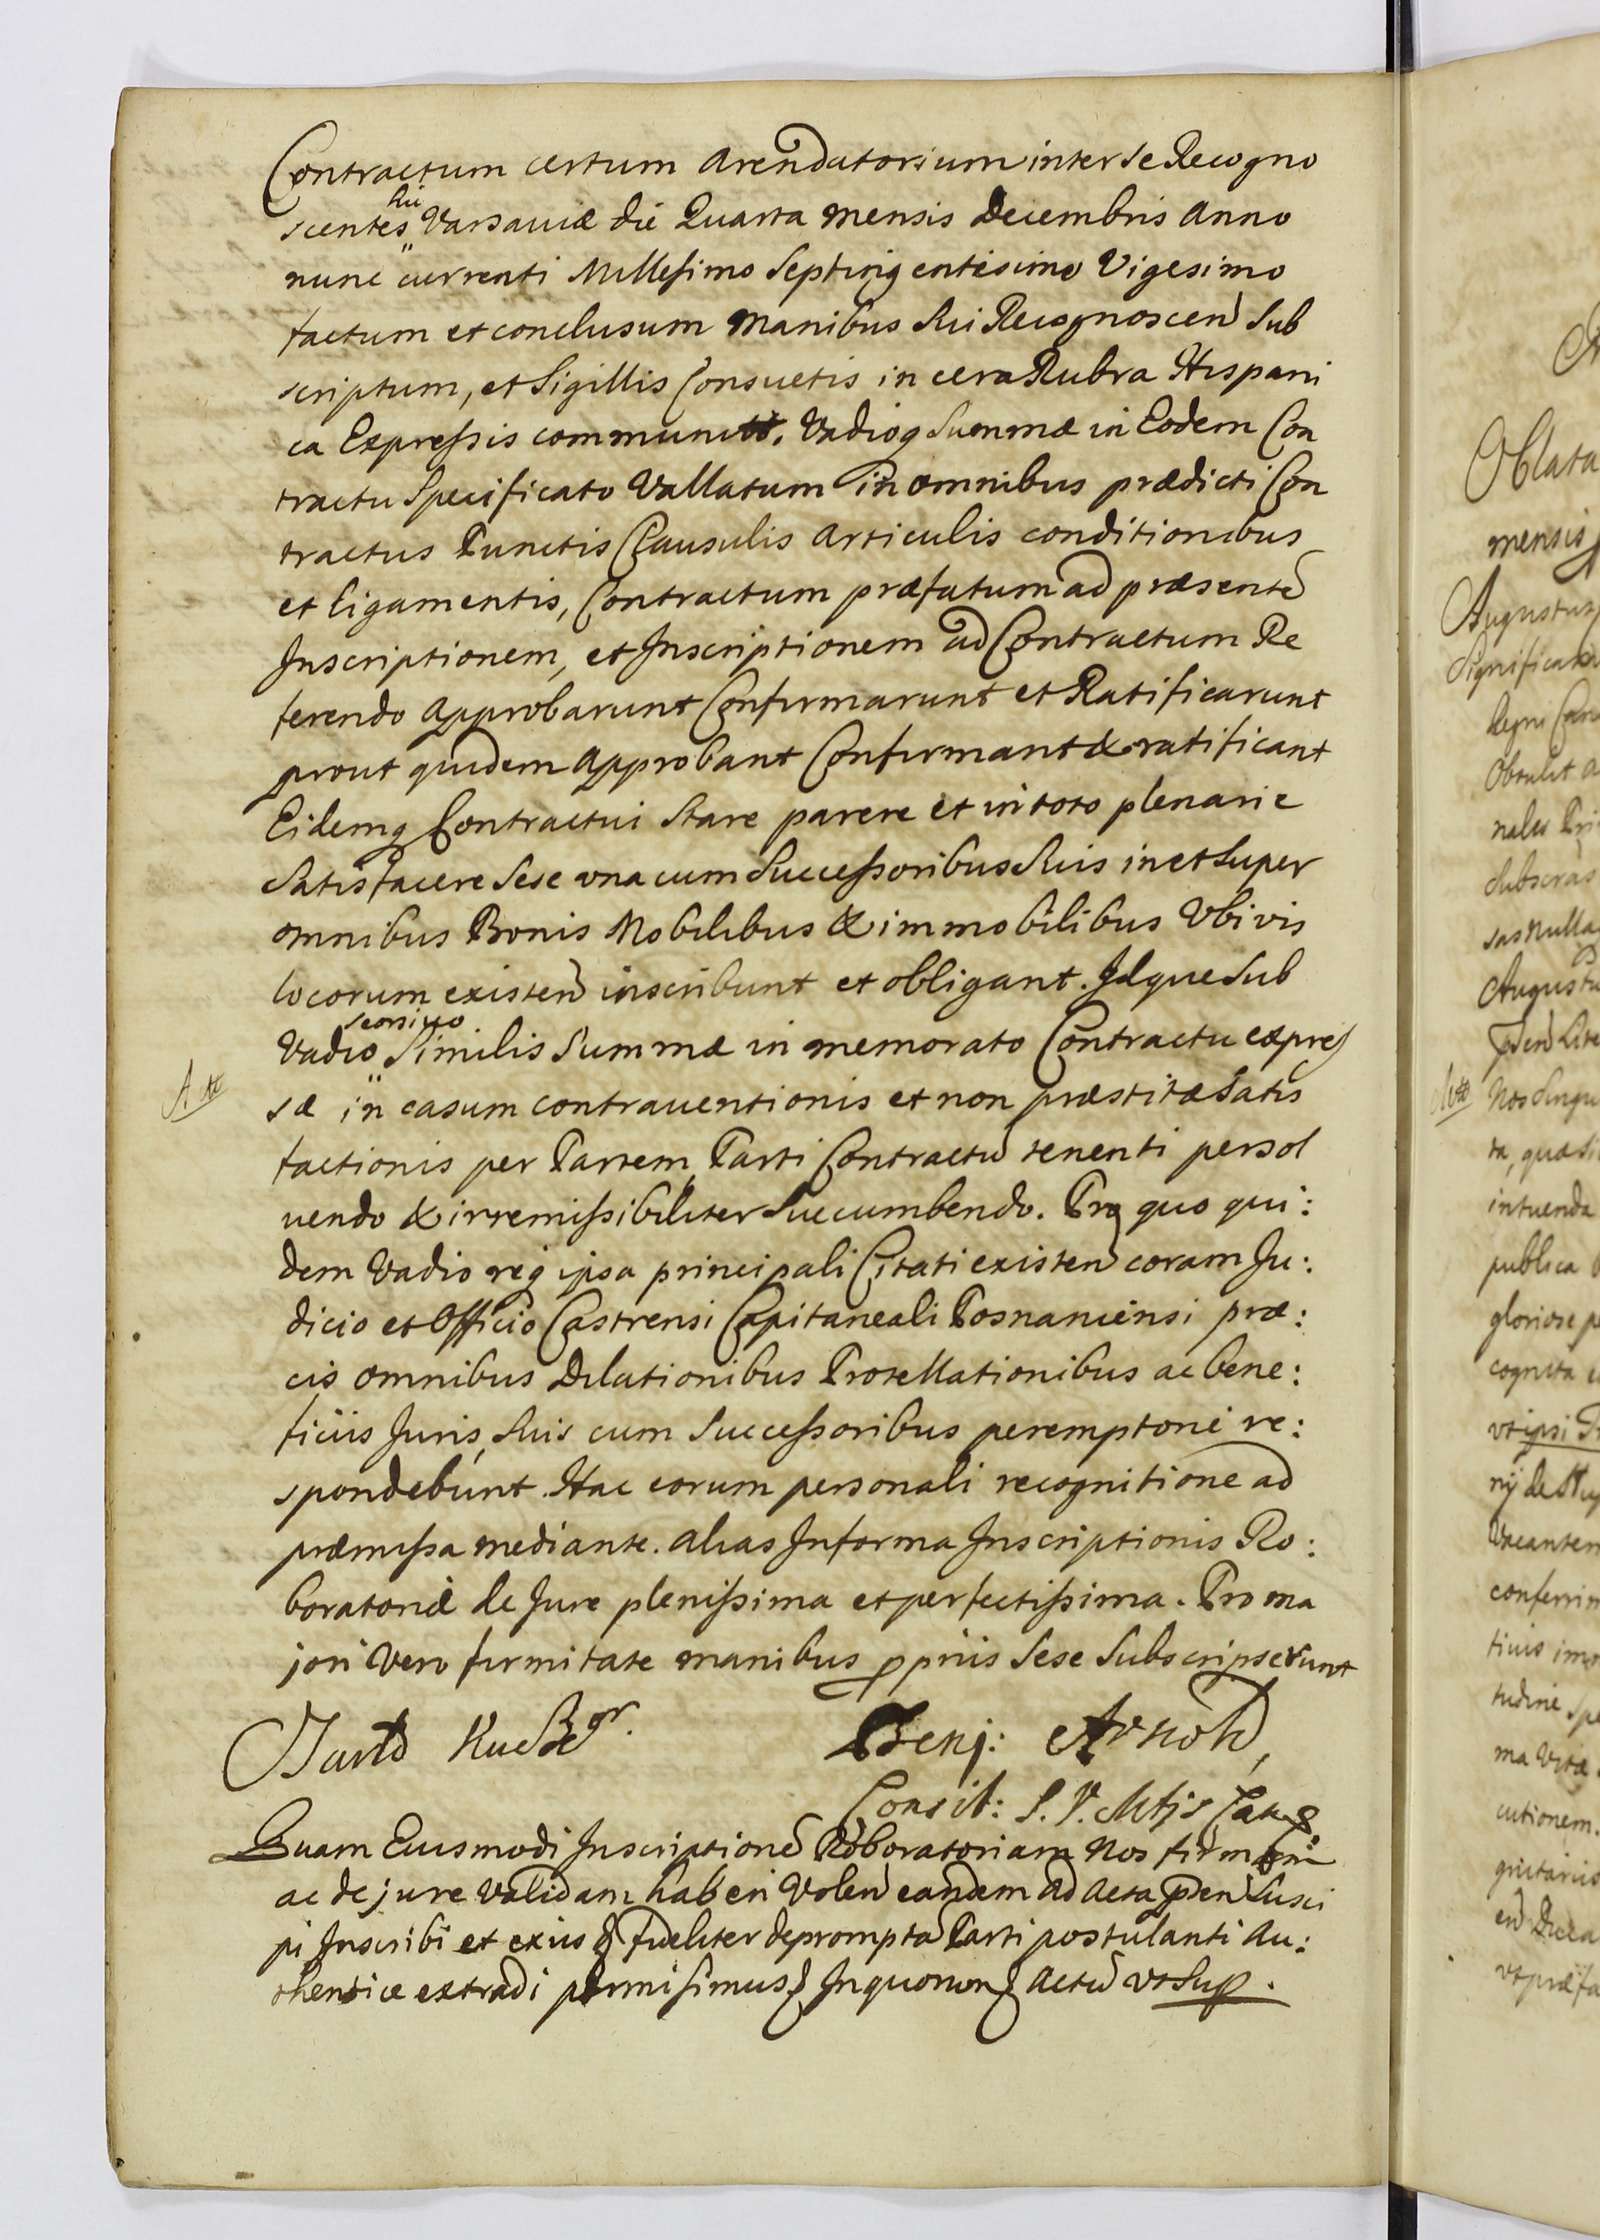 Contractum certum Arendatorium inter se Recogno
scentes hic Varsaviæ die Quarta mensis Decembris Anno
nunc currenti Millesimo Septingentesimo Vigesimo
factum et conclusum manibus sui Recognoscen Sub
scriptum, et Sigillis Consuetis in cera Rubra Hispani
ca Expressis communitt. Vadioq Summæ in Eodem Con
tractu Specificato Vallatum in omnibus prædicti Con
tractus Punctis Clausulis articulis conditionibus
et ligamentis, Contractum præfatum ad præsente
Inscriptionem, et Inscriptionem ad Contractum Re
ferendo approbarunt Confirmarunt et Ratificarunt
prout quidem approbant Confirmant & ratificant
Eidemq Contractui stare parere et in toto plenarie
Satisfacere Sese una cum Successoribus Suis in et Super
omnibus Bonis Mobilibus & immobilibus Vbi vis
locorum existen inscribunt et obligant. Idque Sub
Vadio seorsivo Similis Summæ in memorato Contractu expres
sæ in casum contraventionis et non præstitæ Satis
factionis per Partem Parti Contractu tenenti persol
uendo & irremissibiliter Succumbendo. Pro quo qui:
dem Vadio req ipsa principali Citati existen coram Ju:
dicio et Officio Castrensi Capitaneali Posnaniensi præ:
cis omnibus Dilationibus Protellationibus ac bene:
ficiis Juris, Suis cum Successoribus peremptorie re:
spondebunt. Hac eorum personali recognitione ad
præmissa mediante. alias In forma Inscriptionis Ro:
boratoriæ de Jure plenissima et perfectissima. Pro ma
jori Vero firmitate manibus ppriis Sese Subscripserunt
Benj: Arnold,
Consil: S. R. Mtjs
Quam Eiusmodi Inscriptione Roboratoriam Nos firmam
ac de jure Validam haberi Volen eandem ad Acta pren Susci
pi Inscribi et exius fideliter deprompta Parti postulanti Au:
thentice extradi permisimus In quorum Actu vt Sup.